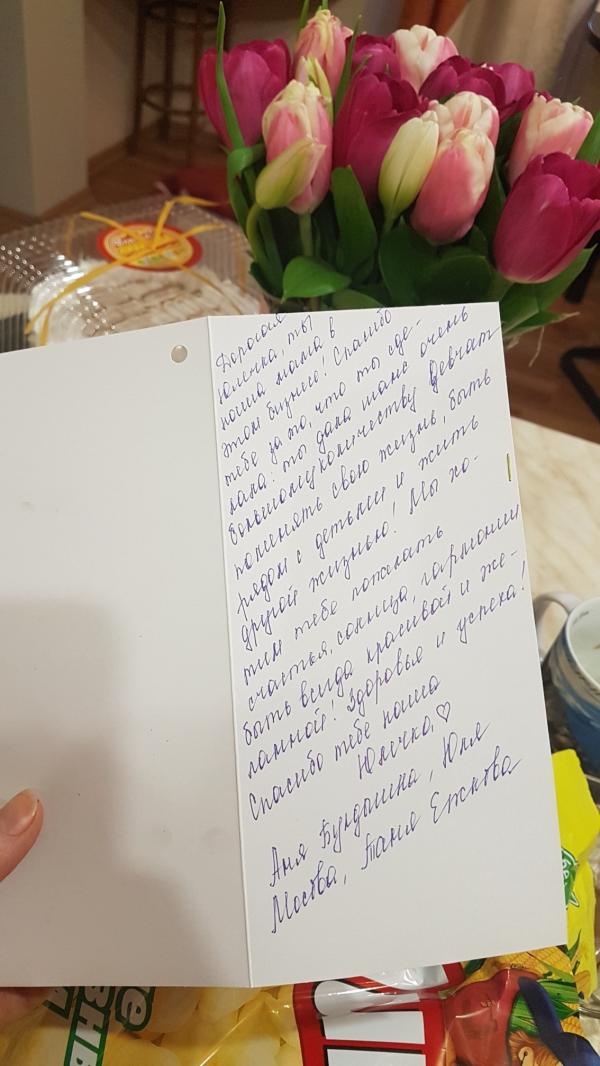 Дорогая
Юлечка, ты
наша мама в
этом бизнесе! Спасибо
тебе за то, что ты сде-
лала: ты дала шанс очень
большому количеству девчат
поменять свою жизнь, быть
рядом с детьми и жить
другой жизнью! Мы хо-
тим тебе пожелать
счастья, солнца, гармонии
быть всегда красивой и же-
ланной! Здоровья и успеха!
Спасибо тебе наша
Юлечка, ♡
Аня Бундышна, Юля
Мосова, Таня Ежкова